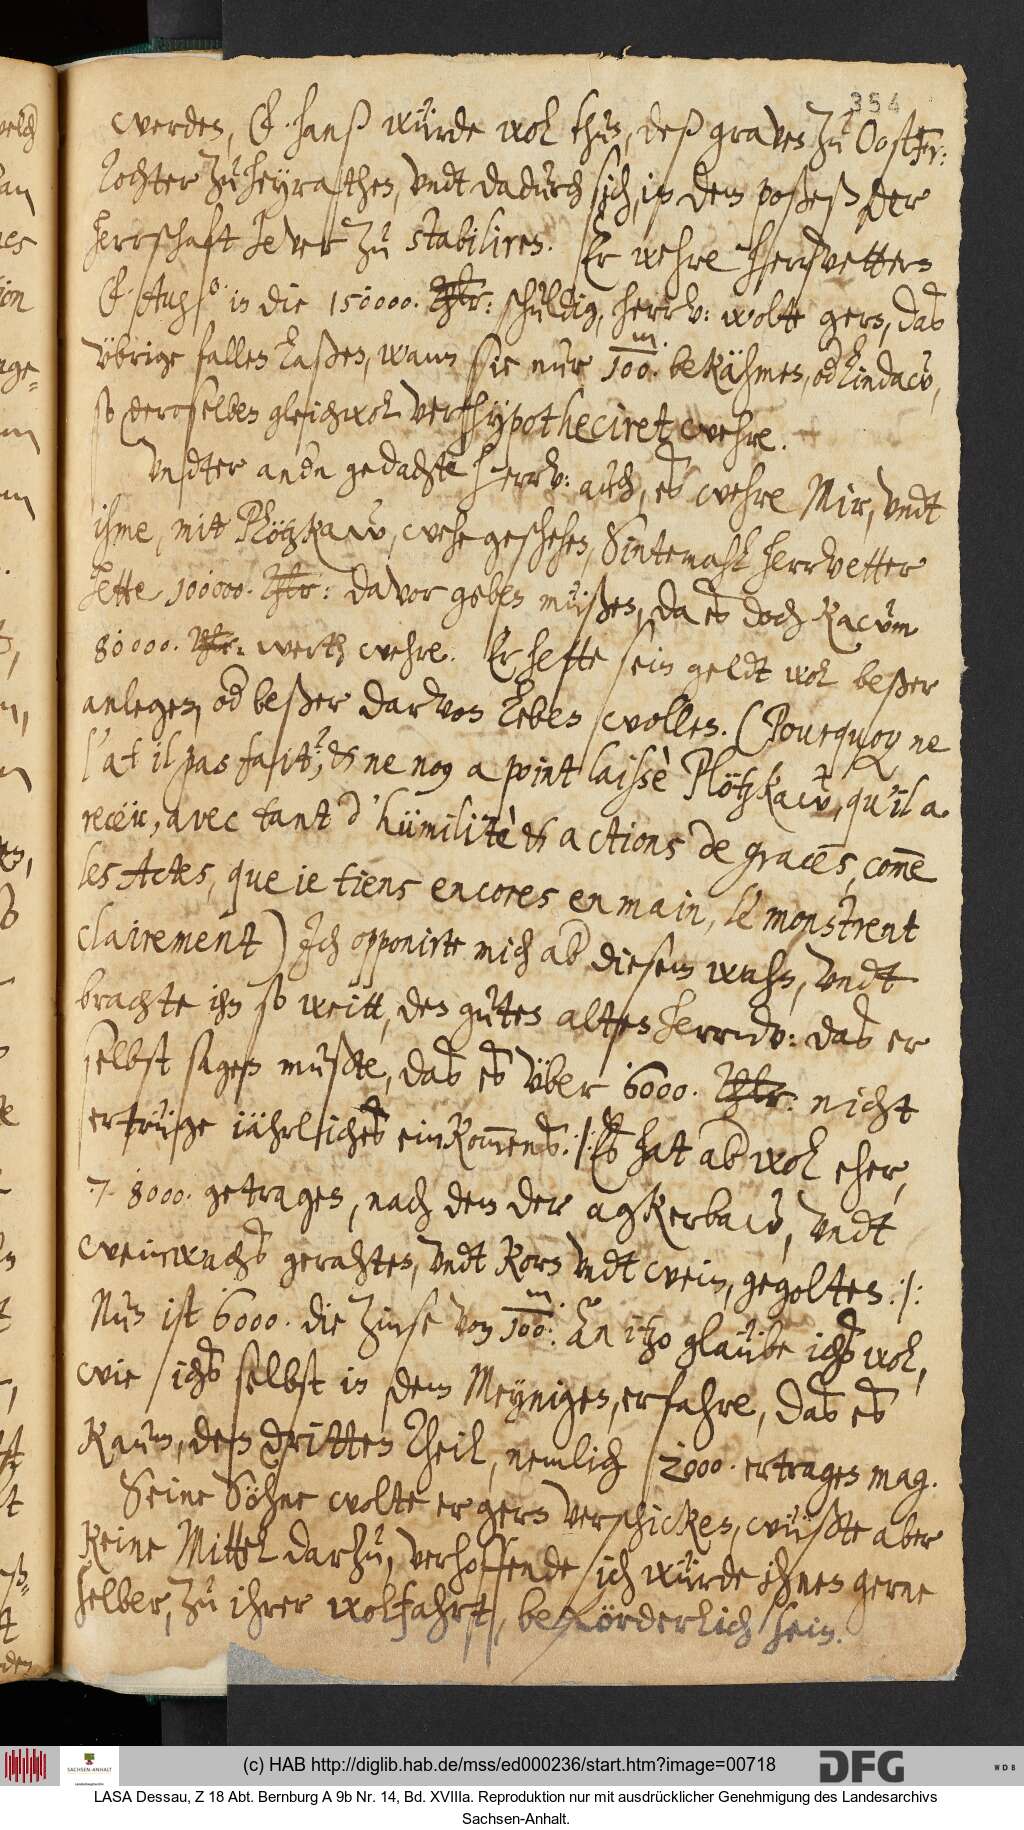 354
werden, E. Hanß würde wol thun, deß graven zu Oostfr:
Tochter zu heyrathen, undt dadurch sich, in dem poßeß der
herrschaft Jever zu stabiliren. Er wehre Herrvettern
in die 150000. Thlr: schuldig, herr v: wollt gern, das
übrige fallen laßen, wann sie nur 100. m bekähmen, od Lindaw,
so deroselben gleichwol verhypotheciret wehre.
Undter andn gedachte Herr v: auch, es wehre Mir, undt
ihme, mit Plötzkaw, wehe geschehen, Sintemahl herrvetter
hette 100000. Thlr: davor geben müßen, da es doch kaum
80000. Thlr: werth wehre. Er hette sein geldt wol beßer
anlegen, od beßer darvon leben wollen. (Pourquoy ne
l'at il pas fait?, & ne noy a point laissè Plötzkaw, qu'il a
receu, avec tant d'humilitè & actions de graces, come
les Actes, que ie tiens encores en main, le monstrent
clairement) Ich opponirte mich ab diesem wahn, undt
brachte ihn so weitt, den guten alten herren v: das er
selbst sagen mußte, das es über 6000. Thlr: nicht
ertrüge iährliches einkommens. :/: Es hat ab wol eher,
7. 8000. getragen, nach dem der agkerbaw, undt
weinwachs gerahten, undt korn undt wein, gegolten. :/:
Nun ist 6000. die Zinse von 100. m: An itzo glaube ichs wol,
wie ichs selbst in dem Meynigen, erfahre, das es
kaum, den dritten Theil, nemlich 2000. ertragen mag.
Seine Söhne wolte er gern verschicken, wüßte aber
keine Mittel darzu, verhoffende ich würde ihnen gerne
selber, zu ihrer wolfahrt, beförderlich sein.
(c) HAB http://diglib.hab.de/mss/ed000236/start.htm?image=00718
SACHSEN-ANHALT
DFG
WDB
LASA Dessau, Z 18 Abt. Bernburg A 9b Nr. 14, Bd. XVIIIa. Reproduktion nur mit ausdrücklicher Genehmigung des Landesarchivs
Sachsen-Anhalt.